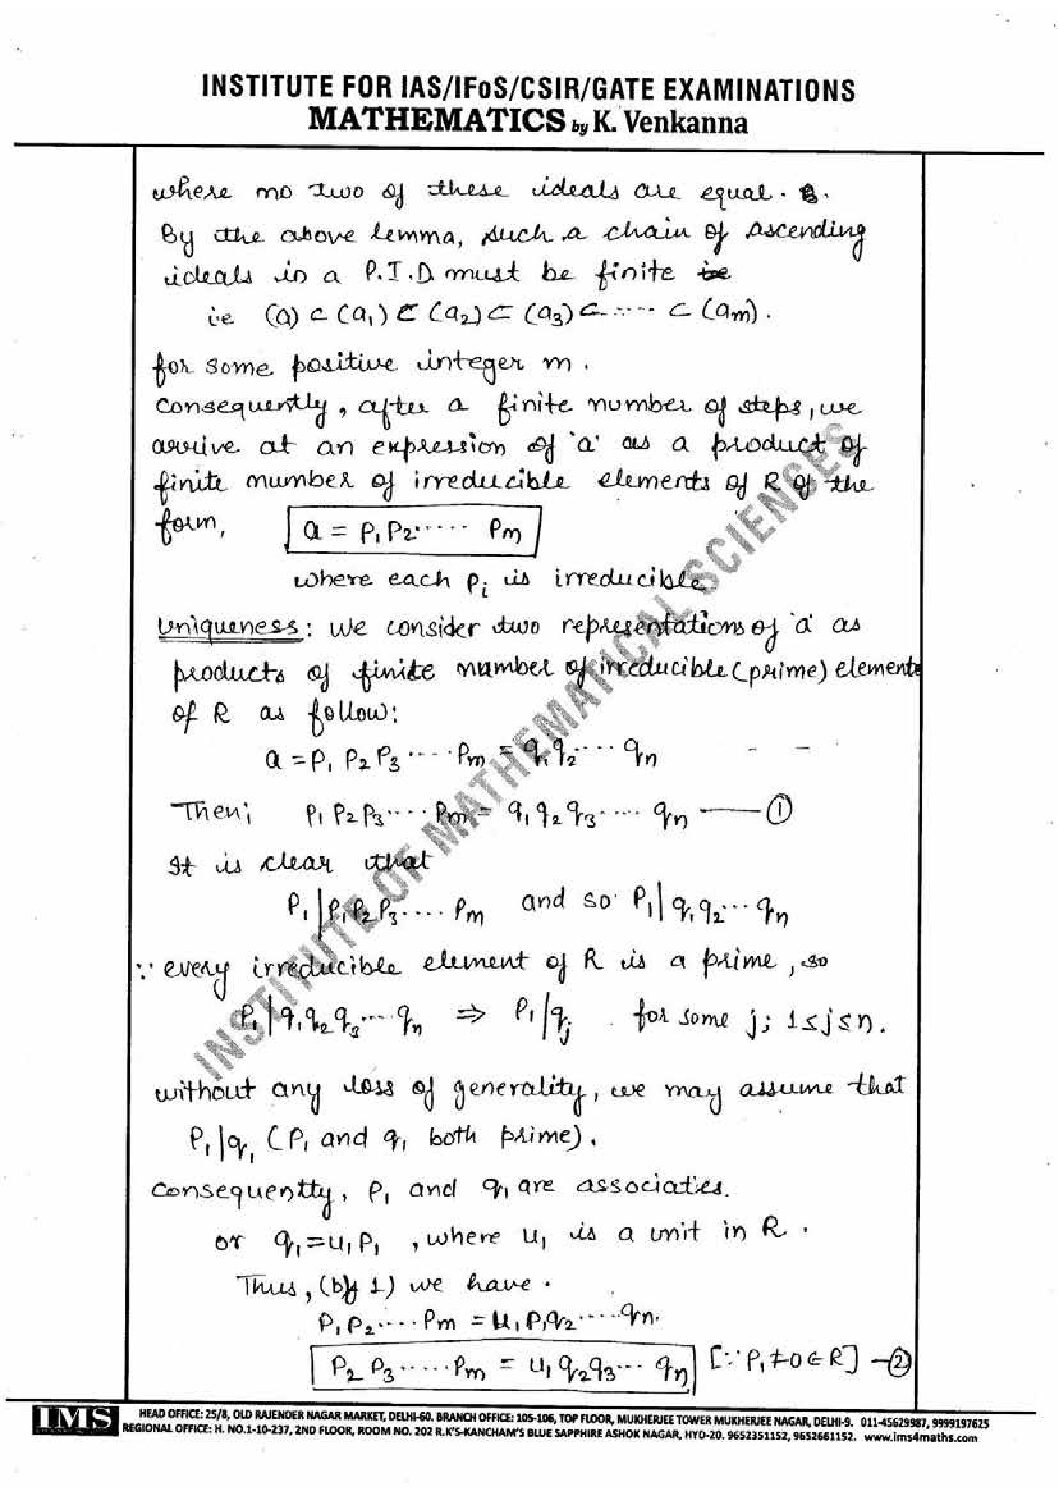 INSTITUTE FOR IAS/IFoS/CSIR/GATE EXAMINATIONS
MATHEMATICS by K. Venkanna
where no two of these ideals are equal.
By the above lemma, such a chain of ascending
ideals in a P.I.D must be finite
i.e (a) ⊂ (a₁) ⊂ (a₂) ⊂ (a₃) ⊂ ...... ⊂ (am).
for some positive integer m.
Consequently, after a finite number of steps, we
arrive at an expression of 'a' as a product of
finite number of irreducible elements of R of the
form, a = P₁P₂...... Pm
where each Pi is irreducible.
Uniqueness: we consider two representations of 'a' as
products of finite number of irreducible (prime) elements
of R as follow:
a = P₁ P₂ P₃ ..... Pm = q₁q₂.... qn
Then; P₁ P₂ P₃..... Pm = q₁q₂q₃..... qn —— ①
It is clear that
P₁|P₁P₂P₃..... Pm and so P₁|q₁q₂... qn
∵ every irreducible element of R is a prime, so
P₁|q₁q₂q₃.... qn ⇒ P₁|qj for some j; 1≤j≤n.
without any loss of generality, we may assume that
P₁|q₁ (P₁ and q₁ both prime).
Consequentty, P₁ and q₁ are associates.
or q₁=u₁P₁ , where u₁ is a unit in R.
Thus, (by 1) we have.
P₁P₂..... Pm = u₁P₁q₂.....qn.
P₂ P₃...... Pm = u₁ q₂q₃... qn [∵ P₁≠0∈R] —②
INSTITUTE OF MATHEMATICAL SCIENCES
IMS
HEAD OFFICE: 25/8, OLD RAJENDER NAGAR MARKET, DELHI-60. BRANCH OFFICE: 105-106, TOP FLOOR, MUKHERJEE TOWER MUKHERJEE NAGAR, DELHI-9. 011-45629987, 9999197625
REGIONAL OFFICE: H. NO.1-10-237, 2ND FLOOR, ROOM NO. 202 R.K'S-KANCHAM'S BLUE SAPPHIRE ASHOK NAGAR, HYD-20. 9652351152, 9652661152. www.ims4maths.com